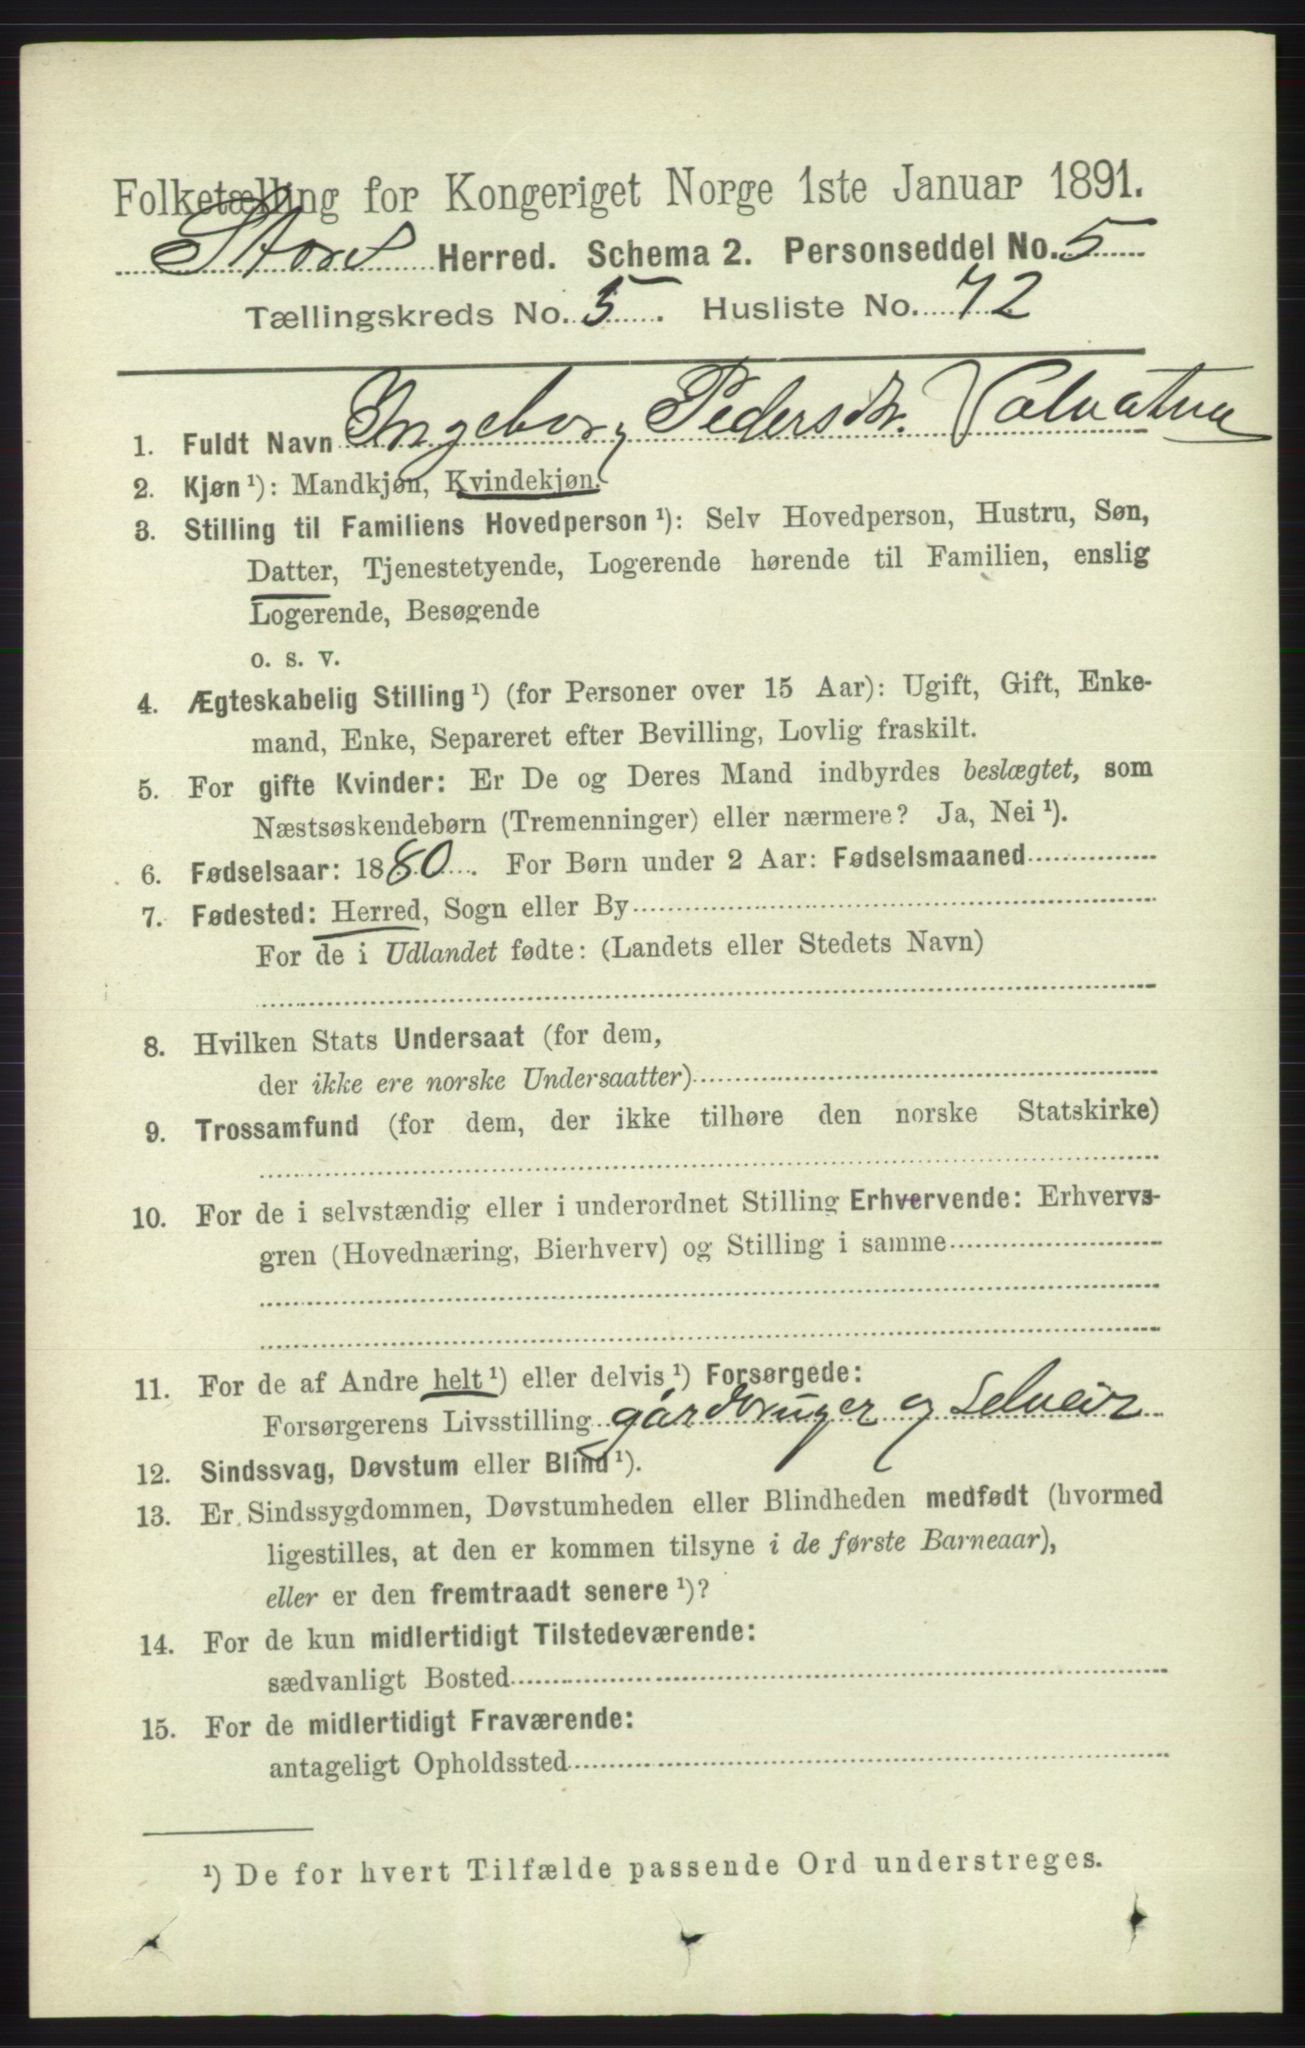 Folketælling for Kongeriget Norge 1ste Januar 1891.
Stord Herred. Schema 2. Personseddel No. 5
Tællingskreds No. 5. Husliste No. 72
1. Fuldt Navn Ingeborg Pedersdtr. Valvatne
2. Kjøn ¹): Mandkjøn, Kvindekjøn.
3. Stilling til Familiens Hovedperson ¹): Selv Hovedperson, Hustru, Søn,
Datter, Tjenestetyende, Logerende hørende til Familien, enslig
Logerende, Besøgende
o. s. v.
4. Ægteskabelig Stilling ¹) (for Personer over 15 Aar): Ugift, Gift, Enke-
mand, Enke, Separeret efter Bevilling, Lovlig fraskilt.
5. For gifte Kvinder: Er De og Deres Mand indbyrdes beslægtet, som
Næstsøskendebørn (Tremenninger) eller nærmere? Ja, Nei ¹).
6. Fødselsaar: 1880. For Børn under 2 Aar: Fødselsmaaned
7. Fødested: Herred, Sogn eller By
For de i Udlandet fødte: (Landets eller Stedets Navn)
8. Hvilken Stats Undersaat (for dem,
der ikke ere norske Undersaatter)
9. Trossamfund (for dem, der ikke tilhøre den norske Statskirke)
10. For de i selvstændig eller i underordnet Stilling Erhvervende: Erhvervs-
gren (Hovednæring, Bierhverv) og Stilling i samme
11. For de af Andre helt ¹) eller delvis ¹) Forsørgede:
Forsørgerens Livsstilling gårdbruger og Selveier
12. Sindssvag, Døvstum eller Blind ¹).
13. Er Sindssygdommen, Døvstumheden eller Blindheden medfødt (hvormed
ligestilles, at den er kommen tilsyne i de første Barneaar),
eller er den fremtraadt senere ¹)?
14. For de kun midlertidigt Tilstedeværende:
sædvanligt Bosted
15. For de midlertidigt Fraværende:
antageligt Opholdssted
¹) De for hvert Tilfælde passende Ord understreges.